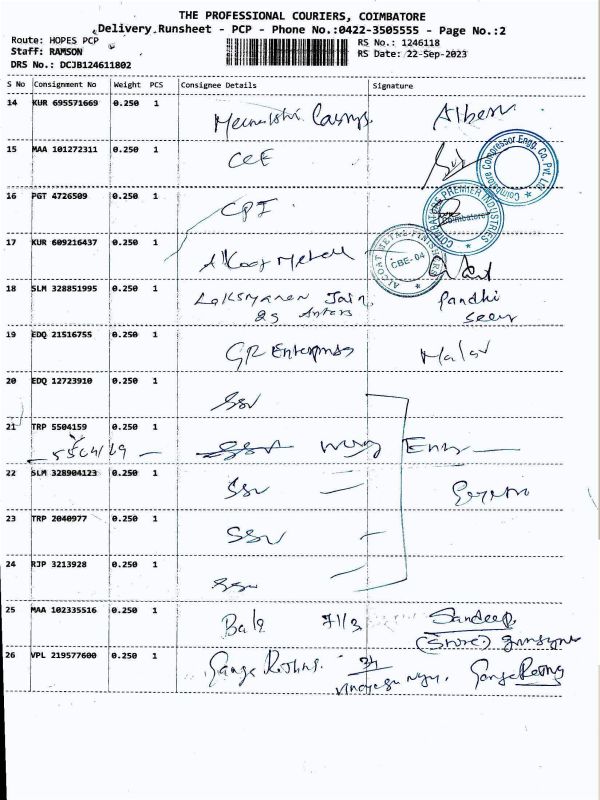 THE PROFESSIONAL COURIERS, COIMBATORE
Delivery Runsheet - PCP - Phone No.:0422-3505555 - Page No.:2
Route: HOPES PCP
Staff: RAMSON
DRS No.: DCJB124611802
RS No.: 1246118
RS Date: 22-Sep-2023
S No Consignment No Weight PCS Consignee Details Signature
14 KUR 695571669 0.250 1
15 MAA 101272311 0.250 1 CEE
Coimbatore Compressor Engg. Co. Pvt. Ltd.
16 PGT 4726509 0.250 1 CPI
COIMBATORE PREMIER INDUSTRIES
Coimbatore
17 KUR 609216437 0.250 1
ALCOAT METAL FINISHERS
CBE-04
18 SLM 328851995 0.250 1 Jain
19 EDQ 21516755 0.250 1 GR Enterprises
20 EDQ 12723910 0.250 1 SSV
21 TRP 5504159 0.250 1
22 SLM 328904123 0.250 1 SSV
23 TRP 2040977 0.250 1 SSV
24 RJP 3213928 0.250 1 SSV
25 MAA 102335516 0.250 1 Sandeep
(Store)
26 VPL 219577600 0.250 1